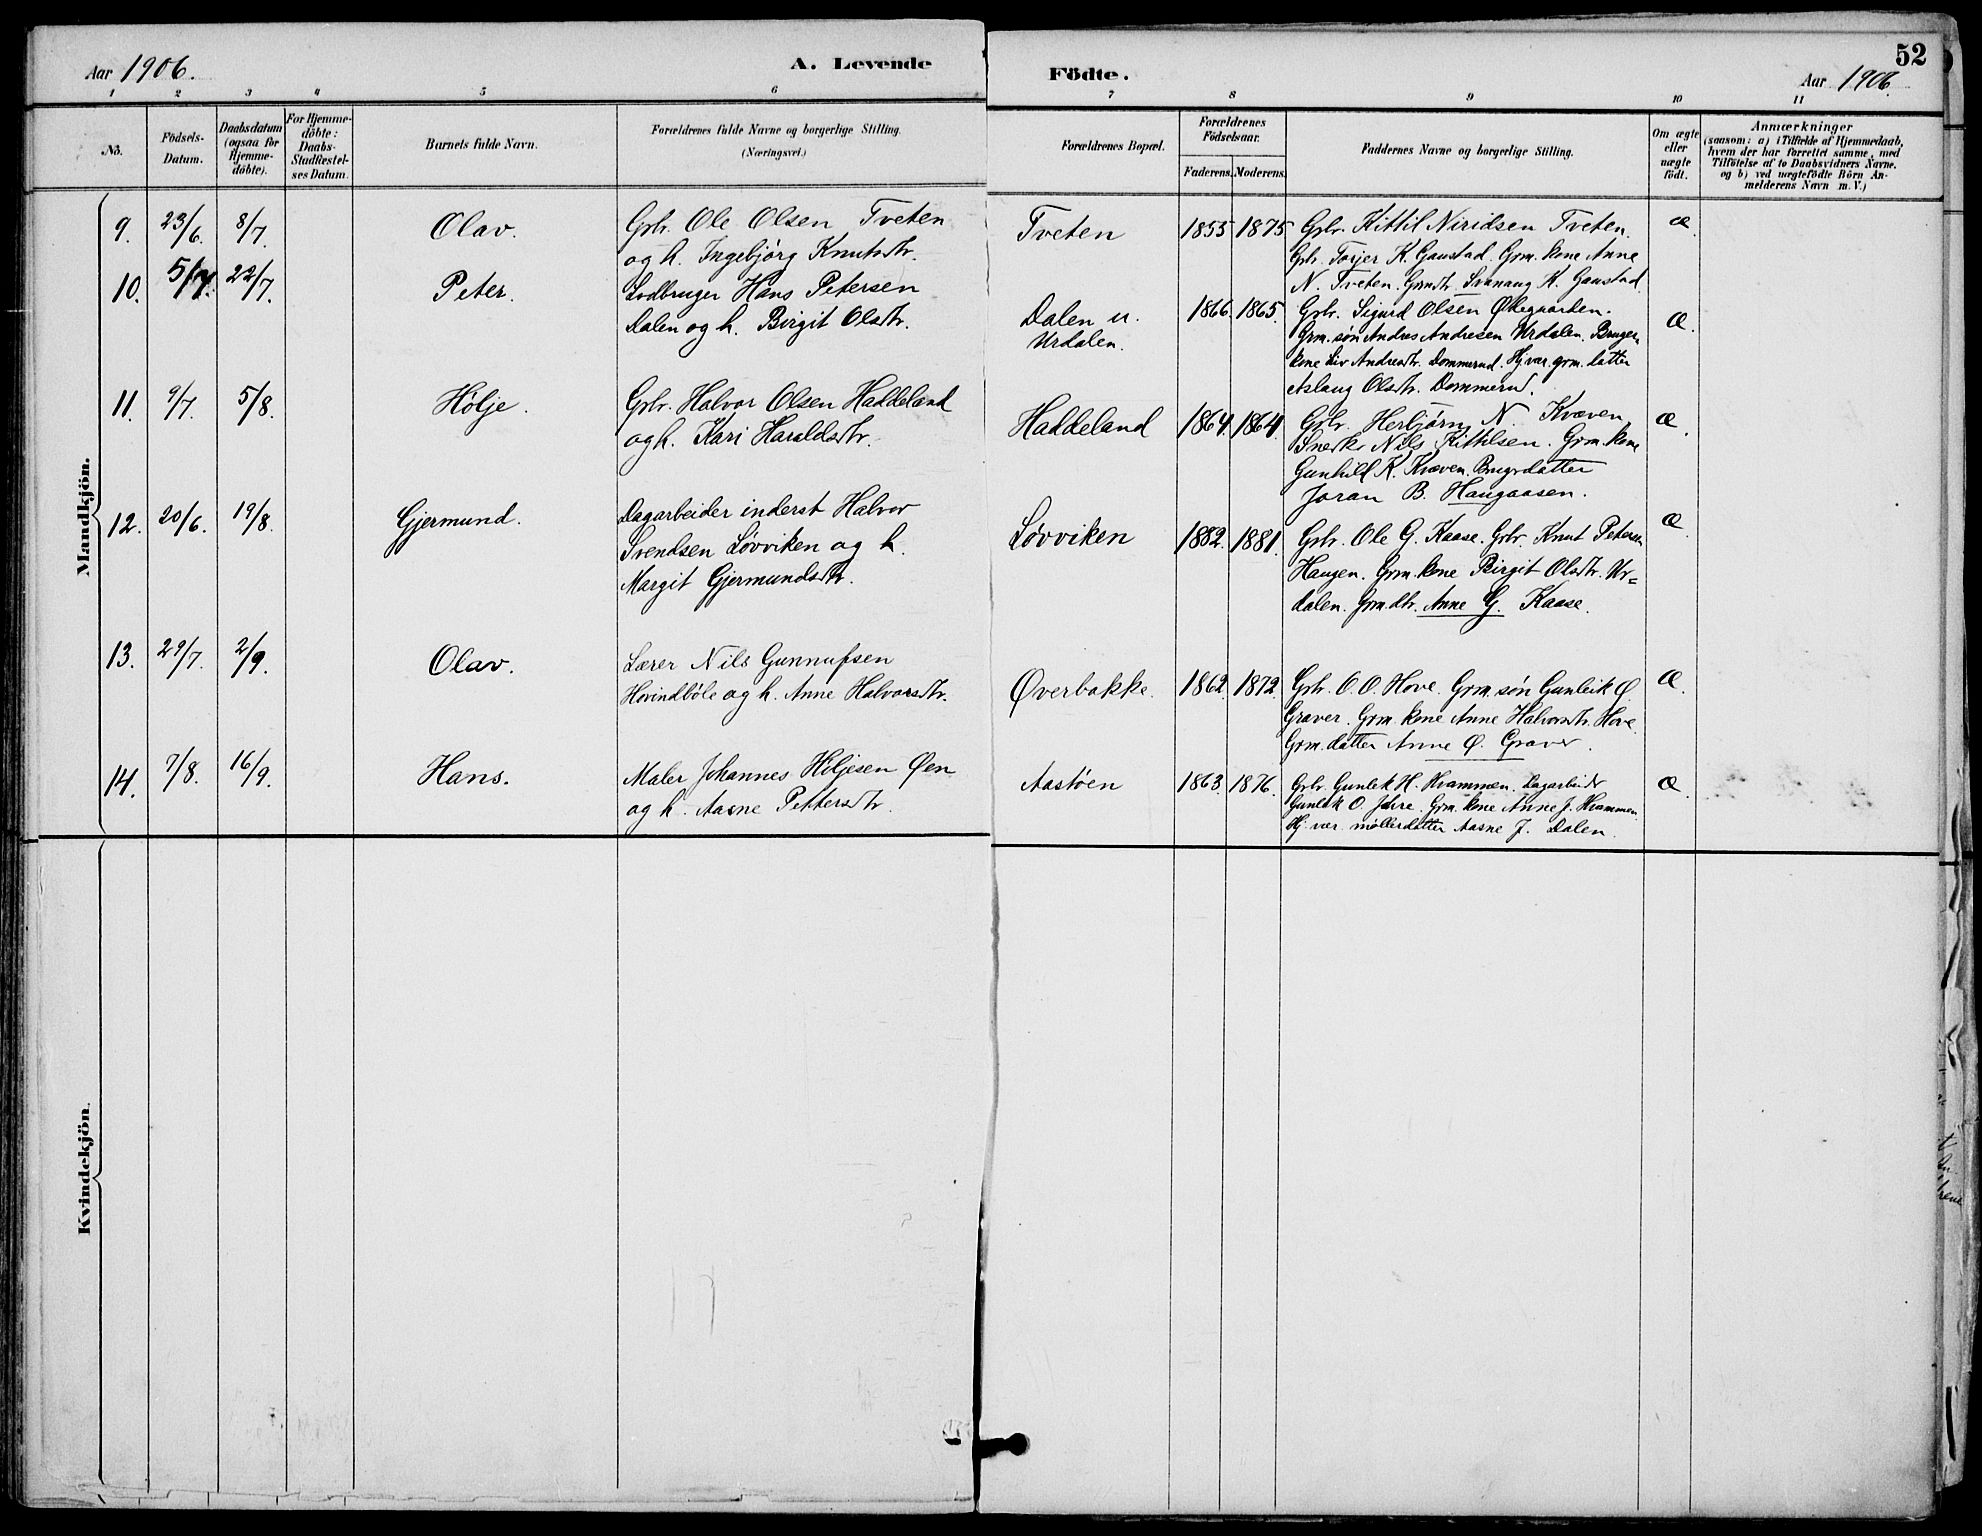 52
Aar 1906.
A. Levende
Födte.
Aar 1906.
1 2 3 4 5 6 7 8 9 10 11
No.
Födsels-
Datum.
Daabsdatum
(ogsaa for
Hjemme-
döbte).
For Hjemme-
döbte:
Daabs-
Stadfæstel-
ses Datum.
Barnets fulde Navn.
Forældrenes fulde Navne og borgerlige Stilling.
(Næringsvei.)
Forældrenes Bopæl.
Forældrenes
Födselsaar.
Faderens. Moderens.
Faddernes Navne og borgerlige Stilling.
Om ægte
eller
uægte
födt.
Anmærkninger
(saasom: a) i Tilfælde af Hjemmedaab,
hvem der har forrettet samme, med
Tilföielse af to Daabsvidners Navne.
og b) ved uægtefödte Börn An-
melderens Navn m. V.)
Mandkjön.
9. 23/6. 8/7. Olav.
Grbr. Ole Olsen Tveten
og h. Ingebjørg Knutsdtr.
Tveten 1855 1875
Grbr. Kittil Niridsen Tveten.
Grbr. Torjer K. Gaustad. Grm. kone Anne
N. Tveten. Grmdtr. Svanaug K. Gaustad
Æ
10. 5/7. 22/7. Peter.
Lodbruger Hans Petersen
Dalen og h. Birgit Olsdtr.
Dalen u.
Urdalen.
1866. 1865.
Grbr. Sigurd Olsen Ødegaarden.
Grm. søn Andres Andresen Urdalen. Bruger
kone Liv Andresdtr. Dommerud. Hjvær. grm. datter
Aslaug Olsdtr. Dommerud.
Æ.
11. 9/7. 5/8. Hølje.
Grbr. Halvor Olsen Haddeland
og h. Kari Haraldsdtr.
Haddeland 1864. 1864.
Grbr. Herbjørn N. Kvæven
Snedker Nils Kittilsen. Grm. kone
Gunhild K. Kvæven. Brugrdatter
Joran B. Haugaasen.
Æ.
12. 20/6. 19/8. Gjermund.
Dagarbeider inderst Halvor
Svendsen Løvviken og h.
Margit Gjermundsdtr.
Løvviken 1882. 1881.
Grbr. Ole G. Kaase. Grbr. Knut Petersen
Haugen. Grm. kone Birgit Olsdtr. Ur=
dalen. Grm. dtr. Anne G. Kaase.
Æ.
13. 29/7. 2/9. Olav.
Lærer Nils Gunnufsen
Hovindbøle og h. Anne Halvorsdtr.
Øverbakke. 1862. 1872.
Grbr. O. O. Hove. Grm. søn Gunleik Ø
Graver. Grm. kone Anne Halvorsdtr. Hove.
Grm. datter Anne Ø. Graver.
Æ.
14. 7/8. 16/9. Hans.
Maler Johannes Höljesen Øen
og h. Aasne Pettersdtr.
Aastøen 1863. 1876.
Grbr. Gunlek H. Kvammen. Dagarbeider
Gunlek O. Jøre. Grm. kone Anne J. Kvammen
Hj. vær. møllerdatter Aasne J. Dalen.
Æ.
Kvindekjön.